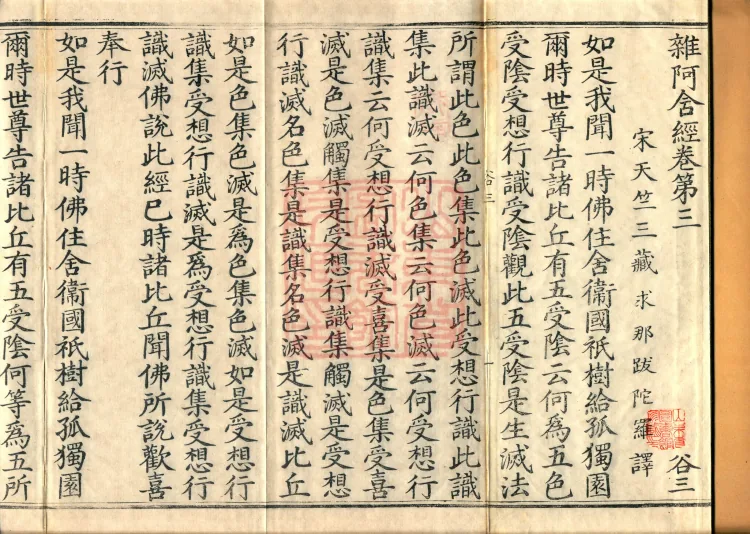 雜阿含經卷第三
谷三
宋天竺三藏求那跋陀羅譯
如是我聞一時佛住舍衞國祇樹給孤獨園
爾時世尊告諸比丘有五受陰云何爲五色
受陰受想行識受陰觀此五受陰是生滅法
谷三
所謂此色此色集此色滅此受想行識此識
集此識滅云何色集云何色滅云何受想行
識集云何受想行識滅受喜集是色集受喜
滅是色滅觸集是受想行識集觸滅是受想
行識滅名色集是識集名色滅是識滅比丘
如是色集色滅是爲色集色滅如是受想行
識集受想行識滅是爲受想行識集受想行
識滅佛說此經已時諸比丘聞佛所說歡喜
奉行
如是我聞一時佛住舍衞國祇樹給孤獨園
爾時世尊告諸比丘有五受陰何等爲五所